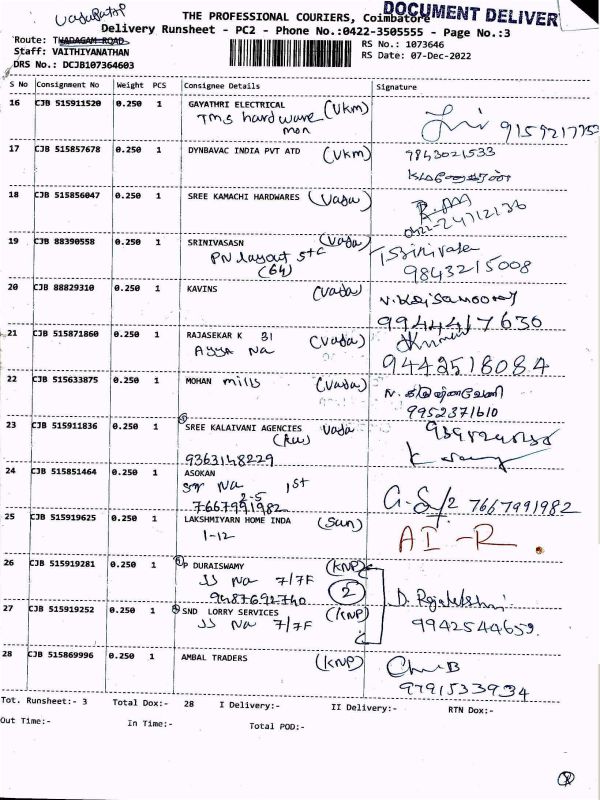 THE PROFESSIONAL COURIERS, Coimbatore
DOCUMENT DELIVER
Delivery Runsheet - PC2 - Phone No.:0422-3505555 - Page No.:3
Route: THADAGAM ROAD
RS No.: 1073646
Staff: VAITHIYANATHAN
RS Date: 07-Dec-2022
DRS No.: DCJB107364603
S No Consignment No Weight PCS Consignee Details Signature
16 CJB 515911520 0.250 1 GAYATHRI ELECTRICAL (Vkm)
TMS hardware
17 CJB 515857678 0.250 1 DYNBAVAC INDIA PVT ATD (Vkm) 9843021533
18 CJB 515856047 0.250 1 SREE KAMACHI HARDWARES (Vada)
0422-24712136
19 CJB 88390558 0.250 1 SRINIVASASN (Vada) T Srinivasa
PN layout
(64) 9843215008
20 CJB 88829310 0.250 1 KAVINS (Vada)
9944417630
21 CJB 515871860 0.250 1 RAJASEKAR K 31 (Vada)
Ayya Na 9442518084
22 CJB 515633875 0.250 1 MOHAN mills (Vada)
9952371610
23 CJB 515911836 0.250 1 SREE KALAIVANI AGENCIES Vada
9363148229
24 CJB 515851464 0.250 1 ASOKAN
Na 1st
7667991982 7667991982
25 CJB 515919625 0.250 1 LAKSHMIYARN HOME INDA (Sun)
1-12 AI-R.
26 CJB 515919281 0.250 1 P DURAISWAMY (KNP)
JJ Na 7/7F 2
9487692740
27 CJB 515919252 0.250 1 SND LORRY SERVICES (KNP)
JJ Na 7/7F 9942544659.
28 CJB 515869996 0.250 1 AMBAL TRADERS (KNP)
9791533934
Tot. Runsheet:- 3 Total Dox:- 28 I Delivery:- II Delivery:- RTN Dox:-
Out Time:- In Time:- Total POD:-